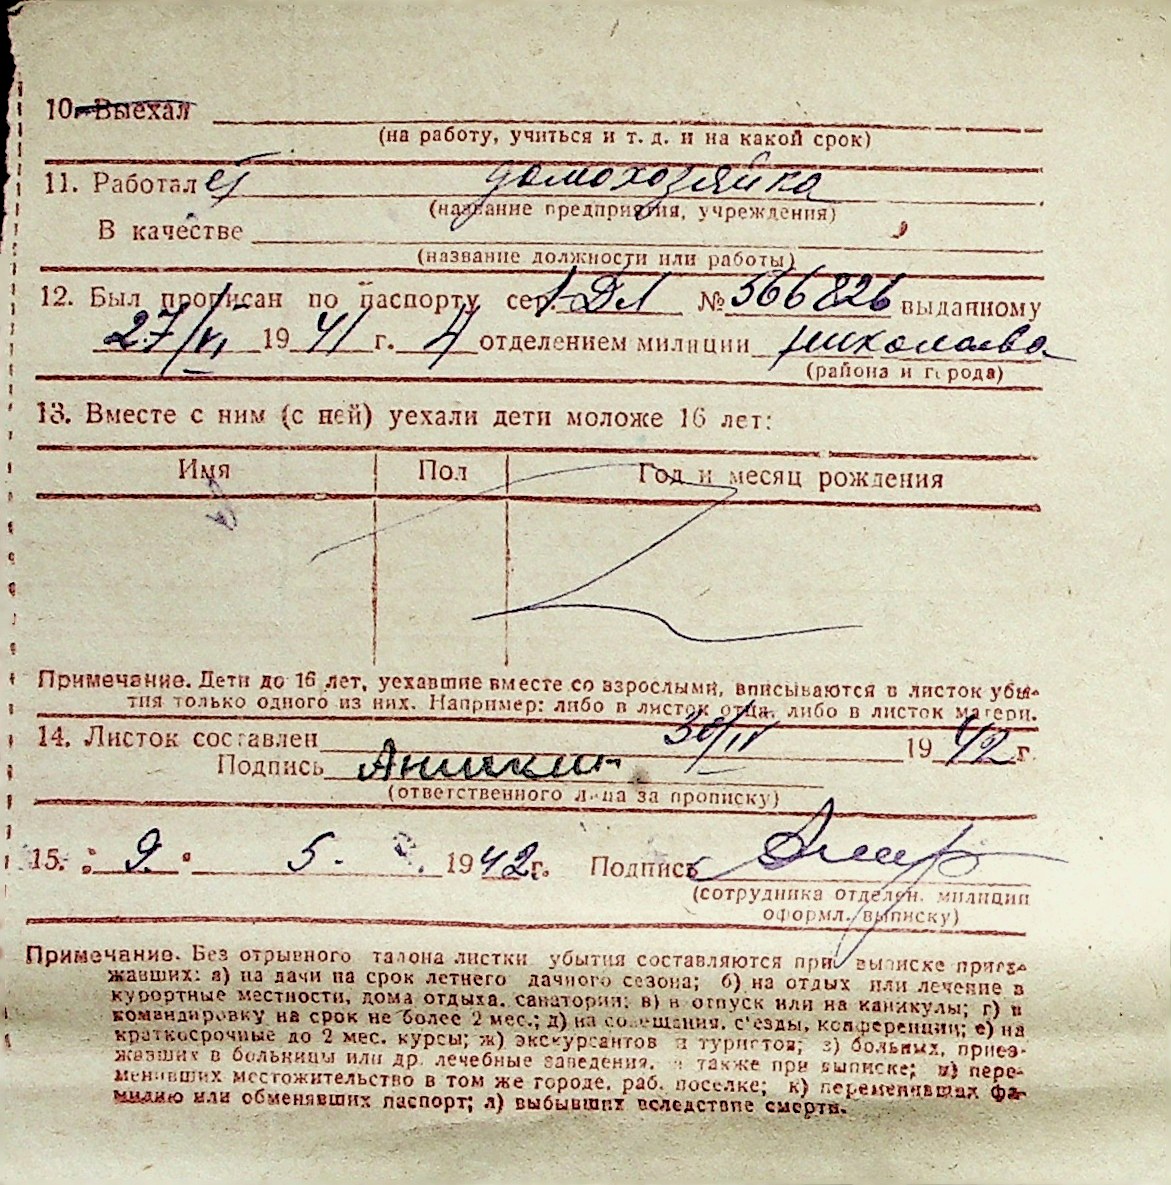 10. Выехал
(на работу, учиться и т. д. и на какой срок)
11. Работал ет домохозяйка
(название предприятия, учреждения)
В качестве
(название должности или работы)
12. Был прописан по паспорту сер. I-ДЛ № 566826 выданному
27/VI 1941 г. 4 отделением милиции Николаева
(района и города)
13. Вместе с ним (с ней) уехали дети моложе 16 лет:
Имя Пол Год и месяц рождения
Примечание. Дети до 16 лет, уехавшие вместе со взрослыми, вписываются в листок убы-
тия только одного из них. Например: либо в листок отца, либо в листок матери.
14. Листок составлен 30/IV 1942 г.
Подпись Аникин
(ответственного лица за прописку)
15. 9. 5. 1942 г. Подпись
(сотрудника отделен. милиции
оформл. выписку)
Примечание. Без отрывного талона листки убытия составляются при выписке приез-
жавших: а) на дачи на срок летнего дачного сезона; б) на отдых или лечение в
курортные местности, дома отдыха, санатории; в) в отпуск или на каникулы; г) в
командировку на срок не более 2 мес.; д) на совещания, с'езды, конференции; е) на
краткосрочные до 2 мес. курсы; ж) экскурсантов и туристов; з) больных, приез-
жавших в больницы или др. лечебные заведения, а также при выписке; и) пере-
менивших местожительство в том же городе, раб. поселке; к) переменивших фа-
милию или обменявших паспорт; л) выбывших вследствие смерти.